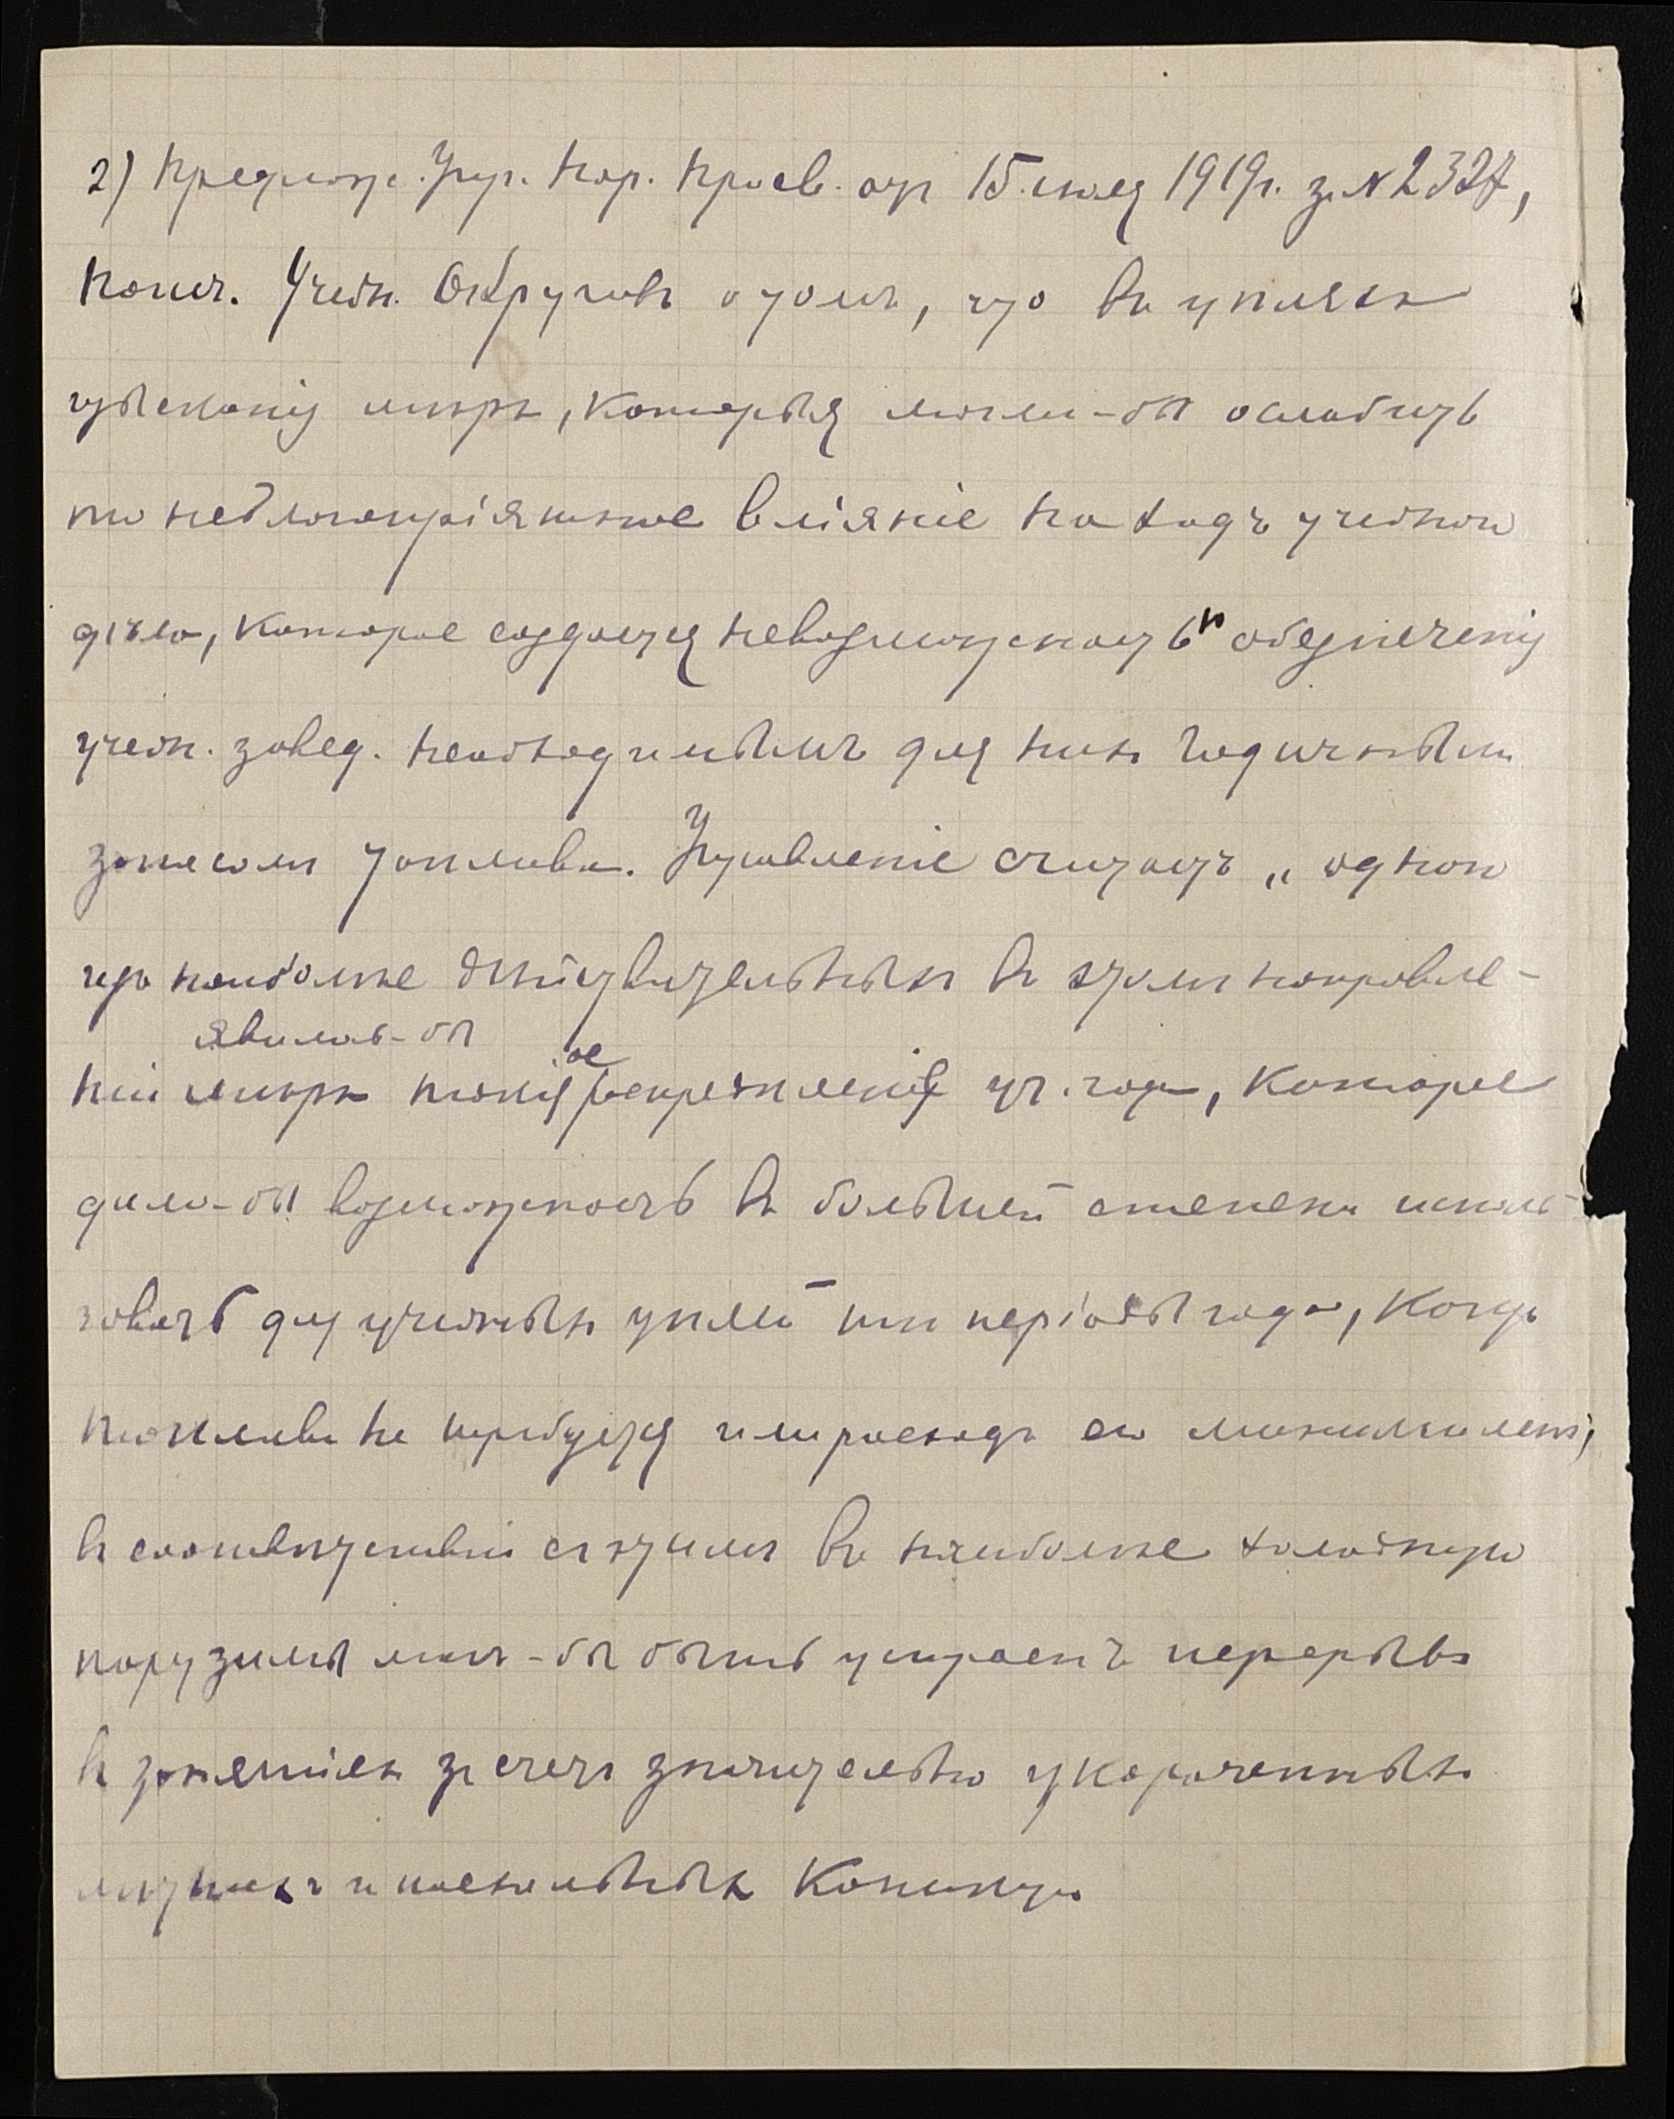 2) Предлож. Упр. Нар. Просв. отъ 15 июля 1919 г. за № 2327,
Попеч. Учебн. Округовъ о томъ, что въ цѣляхъ
изысканія мѣръ, которыя могли-бы ослабить
то неблагопріятное вліяніе на ходъ учебнаго
дѣла, которое создается невозможностью обезпеченія
учебн. завед. необходимымъ для нихъ годичнымъ
запасомъ топлива. Управленіе считаетъ „одною
изъ наиболѣе дѣйствительныхъ въ этомъ направле-
ніи мѣръ явилось-бы такое распредѣленіе уч. года, которое
дало-бы возможность въ большей степени исполь-
зовать для учебныхъ цѣлей тѣ періоды года, когда
топлива не требуется или расходъ его минималенъ,
въ соотвѣтствіи съ этимъ въ наиболѣе холодную
пору зимы могъ-бы быть устроенъ перерывъ
въ занятіяхъ за счетъ значительно укороченныхъ
лѣтнихъ и пасхальныхъ каникулъ